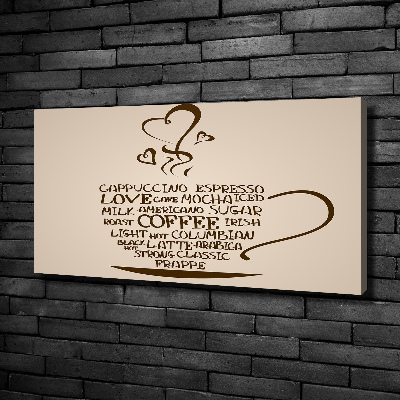 CAPPUCCINO ESPRESSO
LOVE CAKE MOCHA ICED
MILK AMERICANO SUGAR
ROAST COFFEE IRISH
LIGHT HOT COLUMBIAN
BLACK HOT LATTE ARABICA
STRONG CLASSIC
FRAPPE